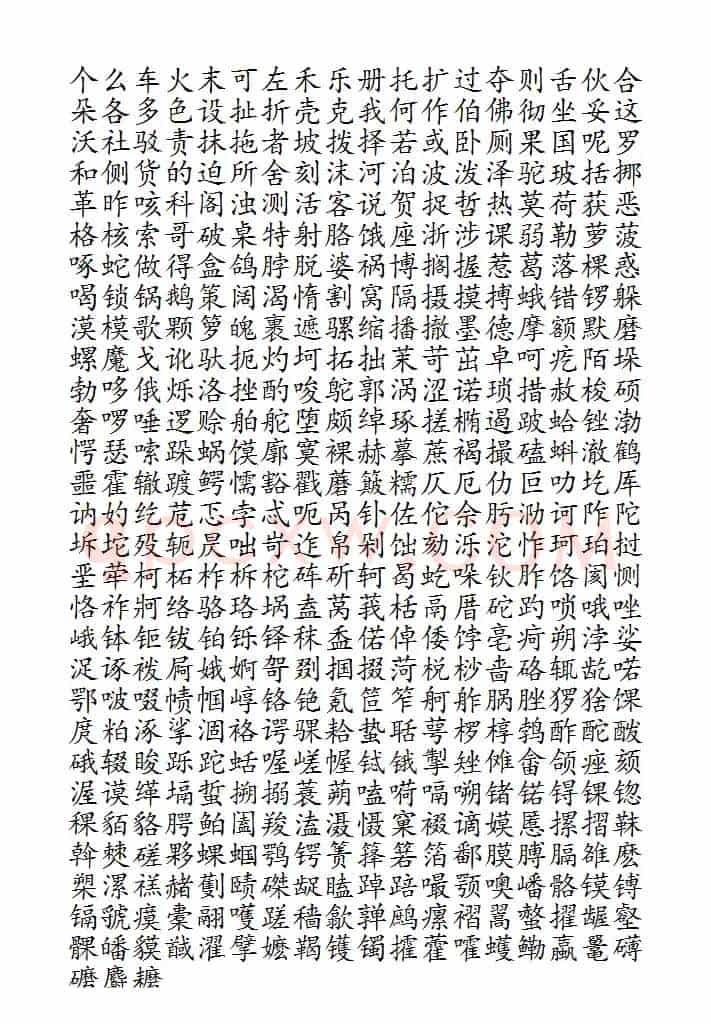 个么车火末可左禾乐册托扩过夺则舌伙合
朵各多色设扯折壳克我何作伯佛彻坐妥这
沃社驳责抹拖者坡拨择若或卧厕果国呢罗
和侧货的迫所舍刻沫河泊波泼泽驼玻括挪
革昨咳科阁浊测活客说贺捉哲热莫荷获恶
格核索哥破桌特射胳饿座浙涉课弱勒萝菠
啄蛇做得盒鸽脖脱婆祸博搁握惹葛落棵惑
喝锁锅鹅策阔渴惰割窝隔摄摸搏蛾错锣躲
漠模歌颗箩魄裹遮骡缩播撤墨德摩额默磨
螺魔戈讹驮扼灼坷拓拙茉苛茁卓呵疙陌垛
勃哆俄烁洛挫酌唆鸵郭涡涩诺琐措赦梭硕
奢啰唾逻赊舶舵堕颇绰琢搓椭遏跛蛤锉渤
愕瑟嗦跺蜗馍廓寞裸赫摹蔗褐撮磕蝌澈鹤
噩霍辙踱鳄懦豁戳蘑簸糯仄厄仂叵叻圪厍
讷妁纥苊忑孛忒呃呙钋佐佗佘肟泐诃阼陀
坼坨殁轭炅咄岢迮帛剁饳劾泺沱怍珂珀挝
垩荦柯柘柞柝柁砗斫轲曷虼哚钦胙饹阂恻
恪祚牁络骆珞埚盍莴莪栝鬲厝砣趵唢哦唑
峨钵钷钹铂铄铎秣盉偌倬倭饽亳疴朔浡娑
浞诼袯剐娥婀哿剟掴掇菏棁桫啬硌辄龁喏
鄂啵啜帻帼崞铬铯氪笸笮舸舴脶脞猡猞馃
庹粕涿挲涸袼谔骒耠蛰聒萼椤椁鹁酢酡酦
硪辍畯跞跎蛞喔嵯幄铽锇掣矬傩畲颌痤颏
渥谟缂塥蜇搠搦蓑蒴嗑嗬嗝嗍锗锘锝锞锪
稞貊貉腭鲌阖羧溘滠慑窠裰谪嫫慝摞摺靺
斡榇磋夥蜾蝈鹗锷箦箨箬箔鄱膜膊膈雒麽
槊漯禚赭劐赜磔龊瞌踔踣嘬颚噢嶓骼镆镈
镉虢瘼橐翮嚄蹉穑歙亸鹧瘰褶翯螫擢龌壑
髁皤貘馘濯擘嬷鞨镬镯攉藿嚯蠖鳓蠃鼍礴
礳麝耱